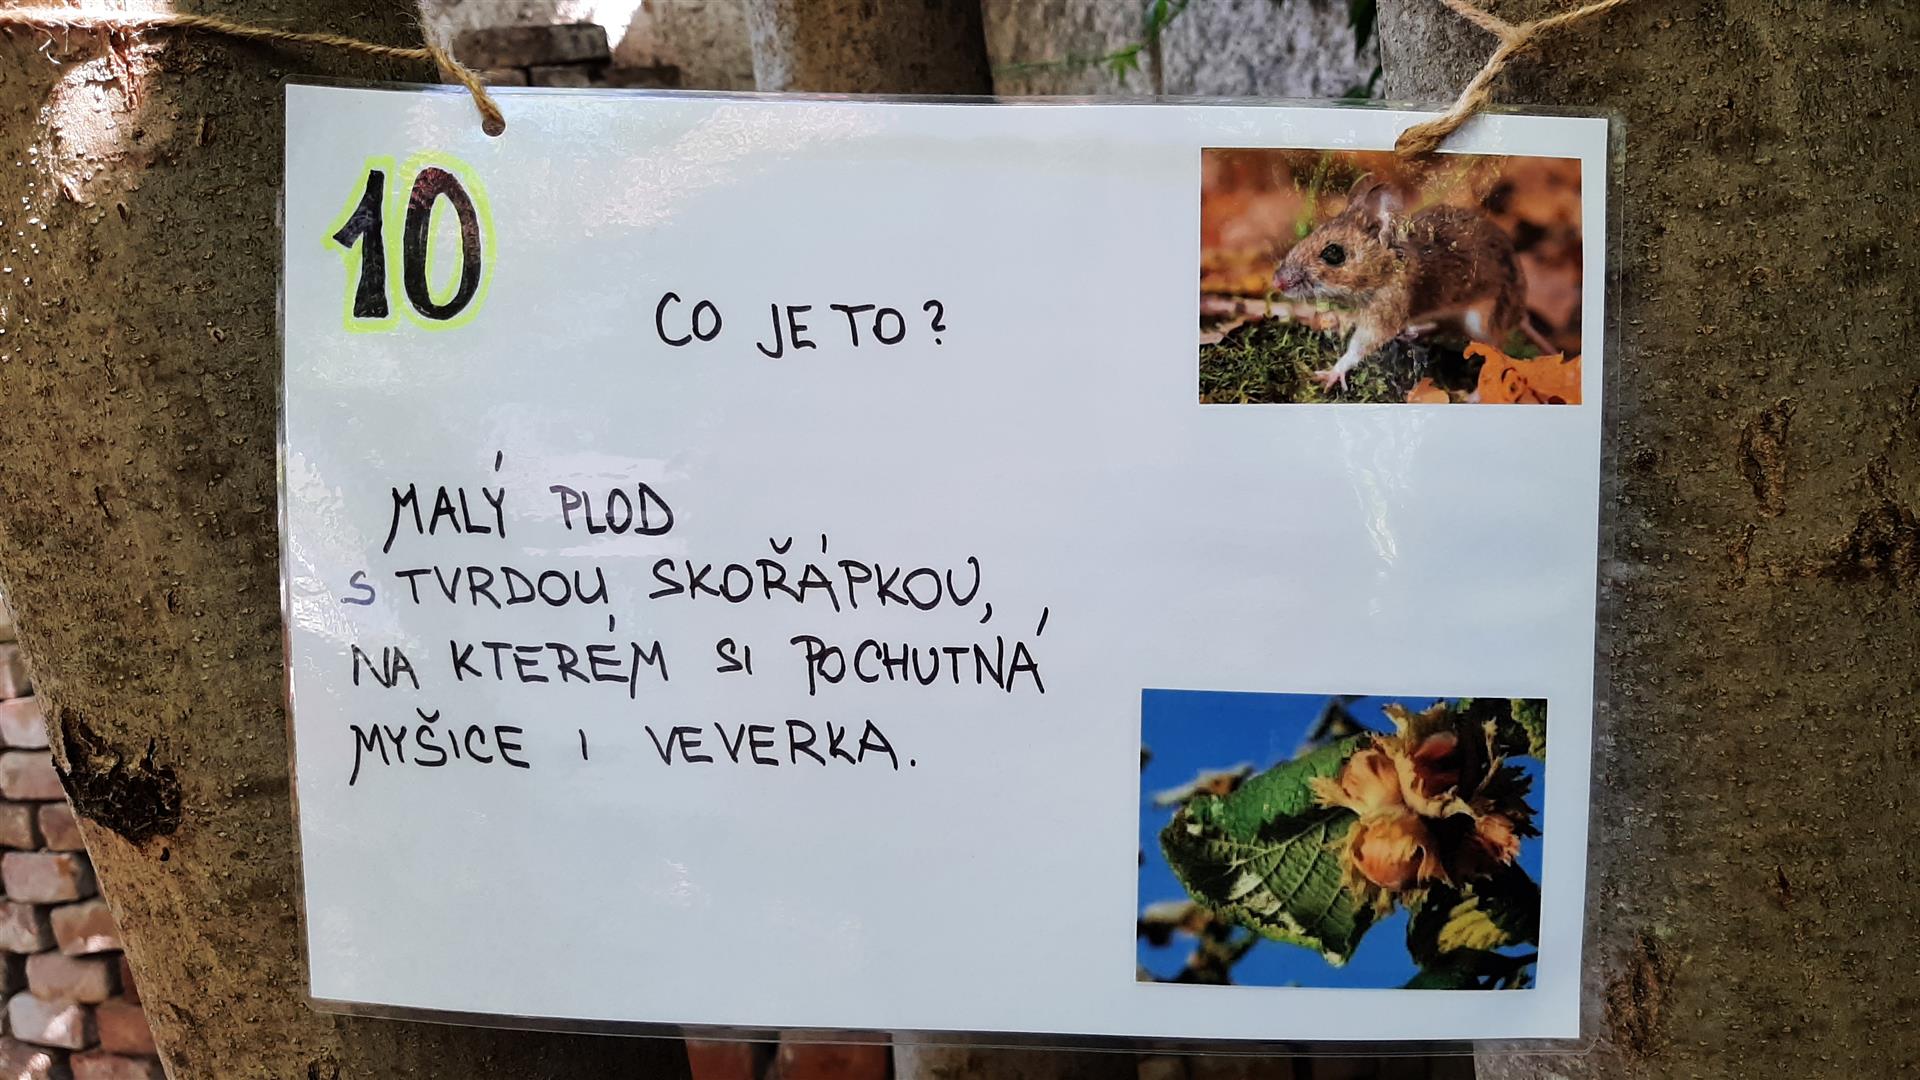 10
CO JE TO?
MALÝ PLOD
S TVRDOU SKOŘÁPKOU,
NA KTERÉM SI POCHUTNÁ
MYŠICE I VEVERKA.